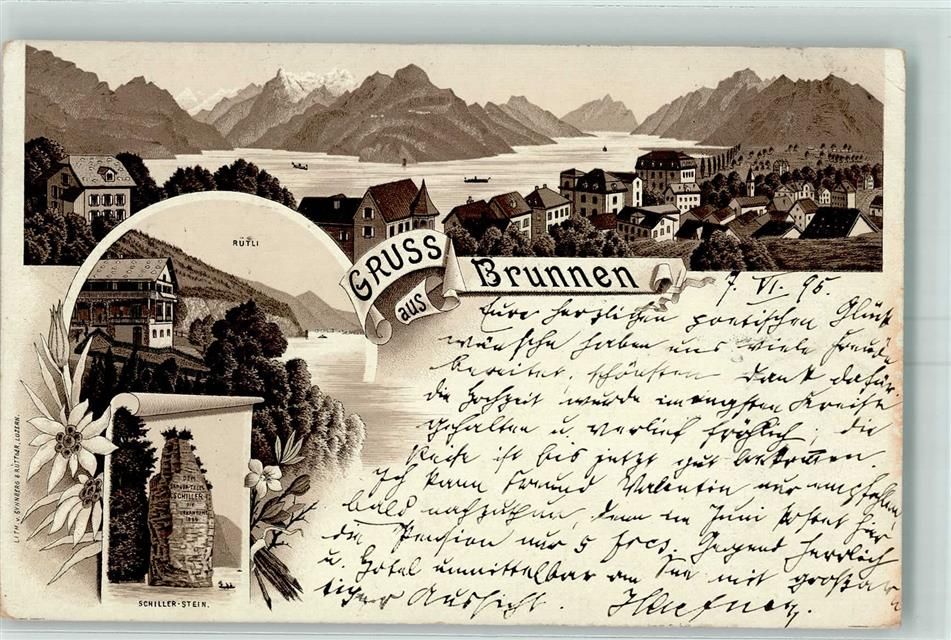 RÜTLI
GRUSS
aus
Brunnen
7. VI. 95.
Eure herzlichen poetischen Glück
wünsche haben uns viele Freude
bereitet, schönsten Dank dafür.
die Hochzeit wurde im engsten Kreise
gehalten u. verlief fröhlich; die
ist bis jetzt gut bekommen.
Ich kann Freund Valentin nur empfehlen,
bald nachzuthun, denn im Juni kostet hier
die Pension nur 5 frcs. Gegend herrlich
u. Hotel unmittelbar am See mit großar
tiger Aussicht.
DEM
SÄNGER TELLS
SCHILLER
DIE
URKANTONE
1859
SCHILLER-STEIN.
LITH. v. SYNNBERG & RÜTTGER, LUZERN.